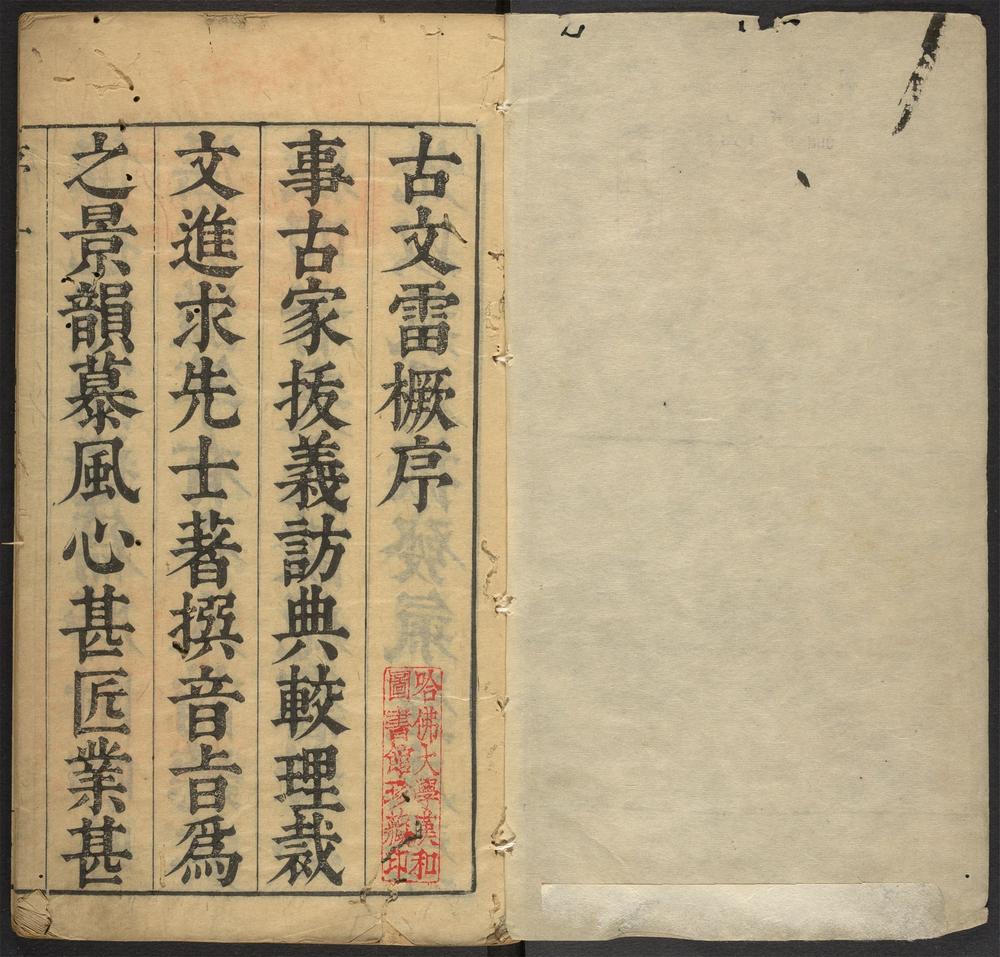 古文雷橛序
事古家拔義訪典較理裁
文進求先士著撰音旨爲
之景韻慕風心甚匠業甚
哈佛大學漢和
圖書館珍藏印